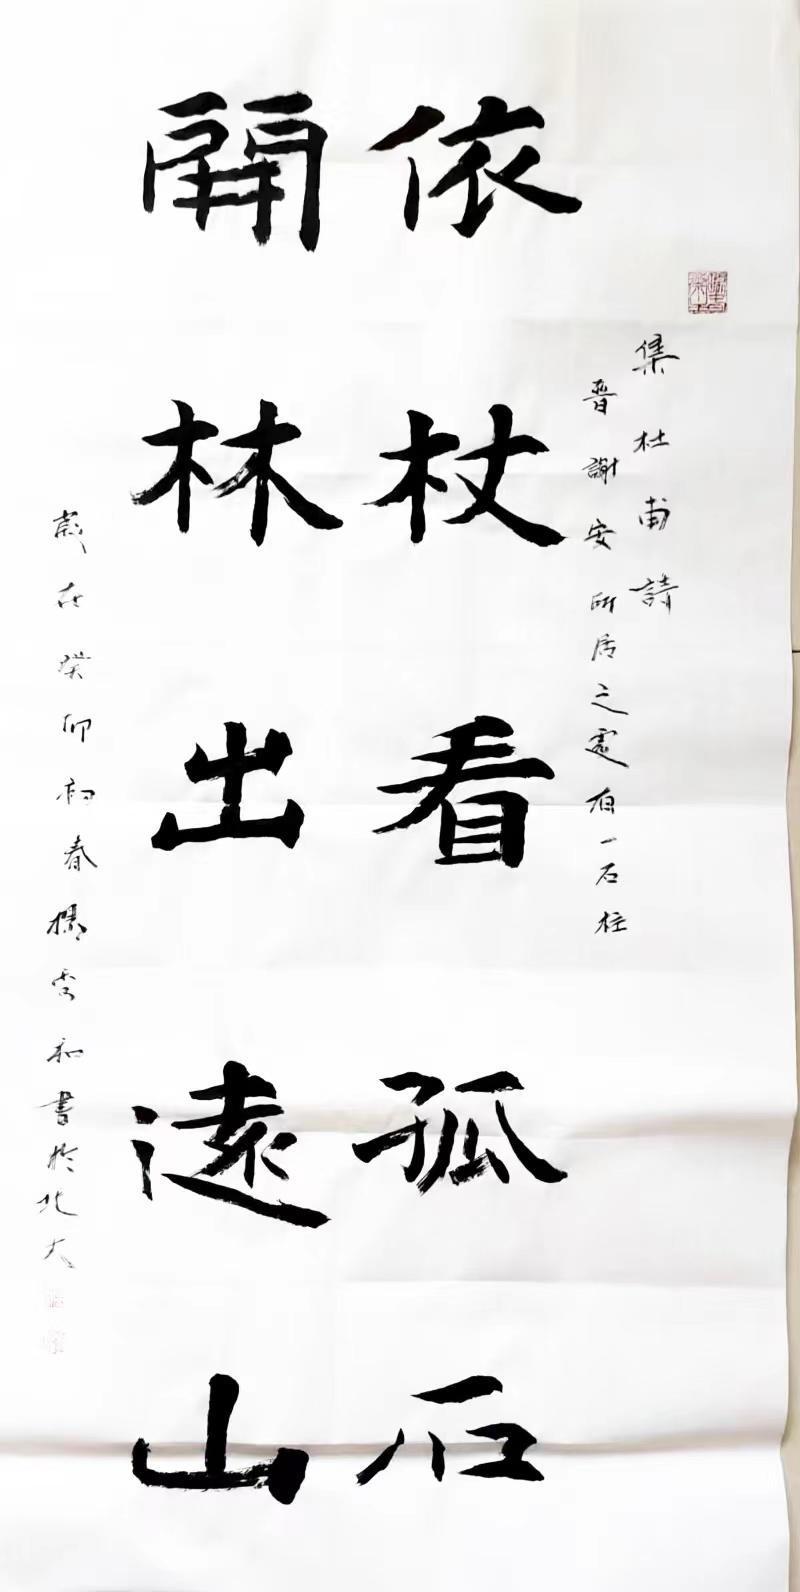 集杜甫詩
晋謝安所居之處有一石柱
依杖看孤石
開林出遠山
歲在癸卯初春楊雲和書於北大